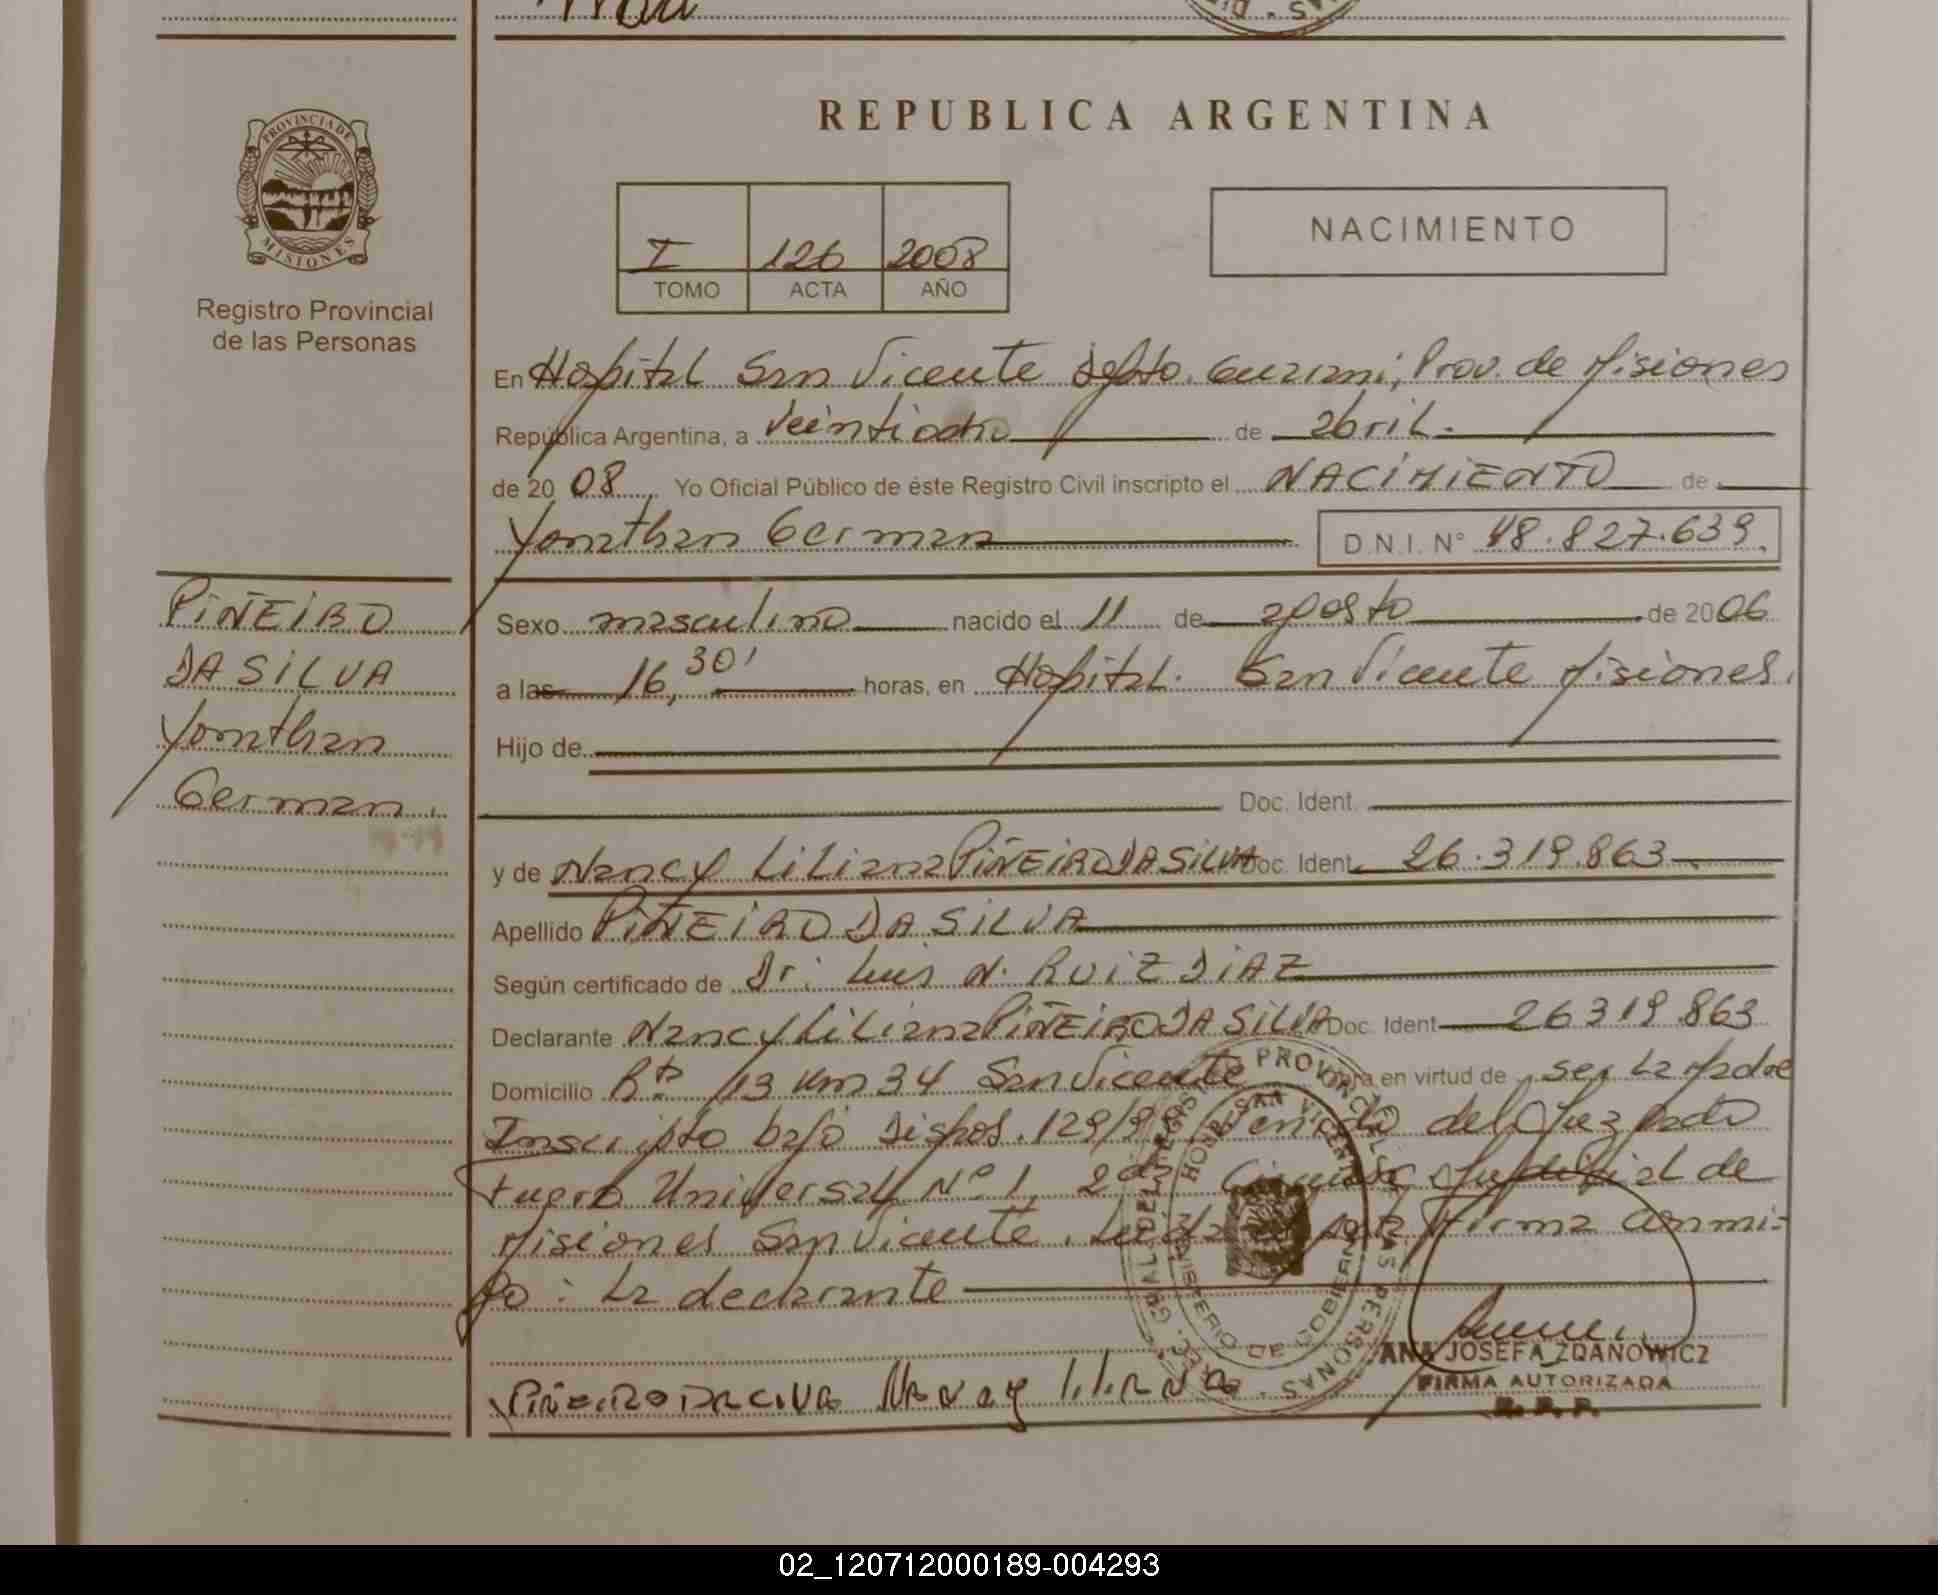 REPUBLICA ARGENTINA
PROVINCIA DE
MISIONES
Registro Provincial
de las Personas
I 126 2008
TOMO ACTA AÑO
NACIMIENTO
En Hospital San Vicente Depto. Guarani, Prov. de Misiones
República Argentina, a Veintiocho de abril.
de 2008 Yo Oficial Público de éste Registro Civil inscripto el NACIMIENTO de
Yonathan German D.N.I. N° 48.827.639
PIÑEIRO
DA SILVA
Yonathan
German.
Sexo masculino nacido el 11 de agosto de 2006
a las 16,30' horas, en Hospital. San Vicente Misiones.
Hijo de
Doc. Ident.
y de Nancy Liliana PIÑEIRO DA SILVA Doc. Ident. 26.319.863
Apellido PIÑEIRO DA SILVA
Según certificado de Dr. Luis N. RUIZ DIAZ
Declarante Nancy Liliana PIÑEIRO DA SILVA Doc. Ident 26319.863
Domicilio Rta 13 Km 34 San Vicente en virtud de ser la Madre
Inscripto bajo Dispos. 129/ del Juzgado
Fuero Universal N° 1, 2da Judicial de
Misiones San Vicente. Firma conmi-
go: La declarante
PIÑEIRO DA CILVA Nancy liliana
ANA JOSEFA ZDANOWICZ
FIRMA AUTORIZADA
R. P. P.
02_120712000189-004293